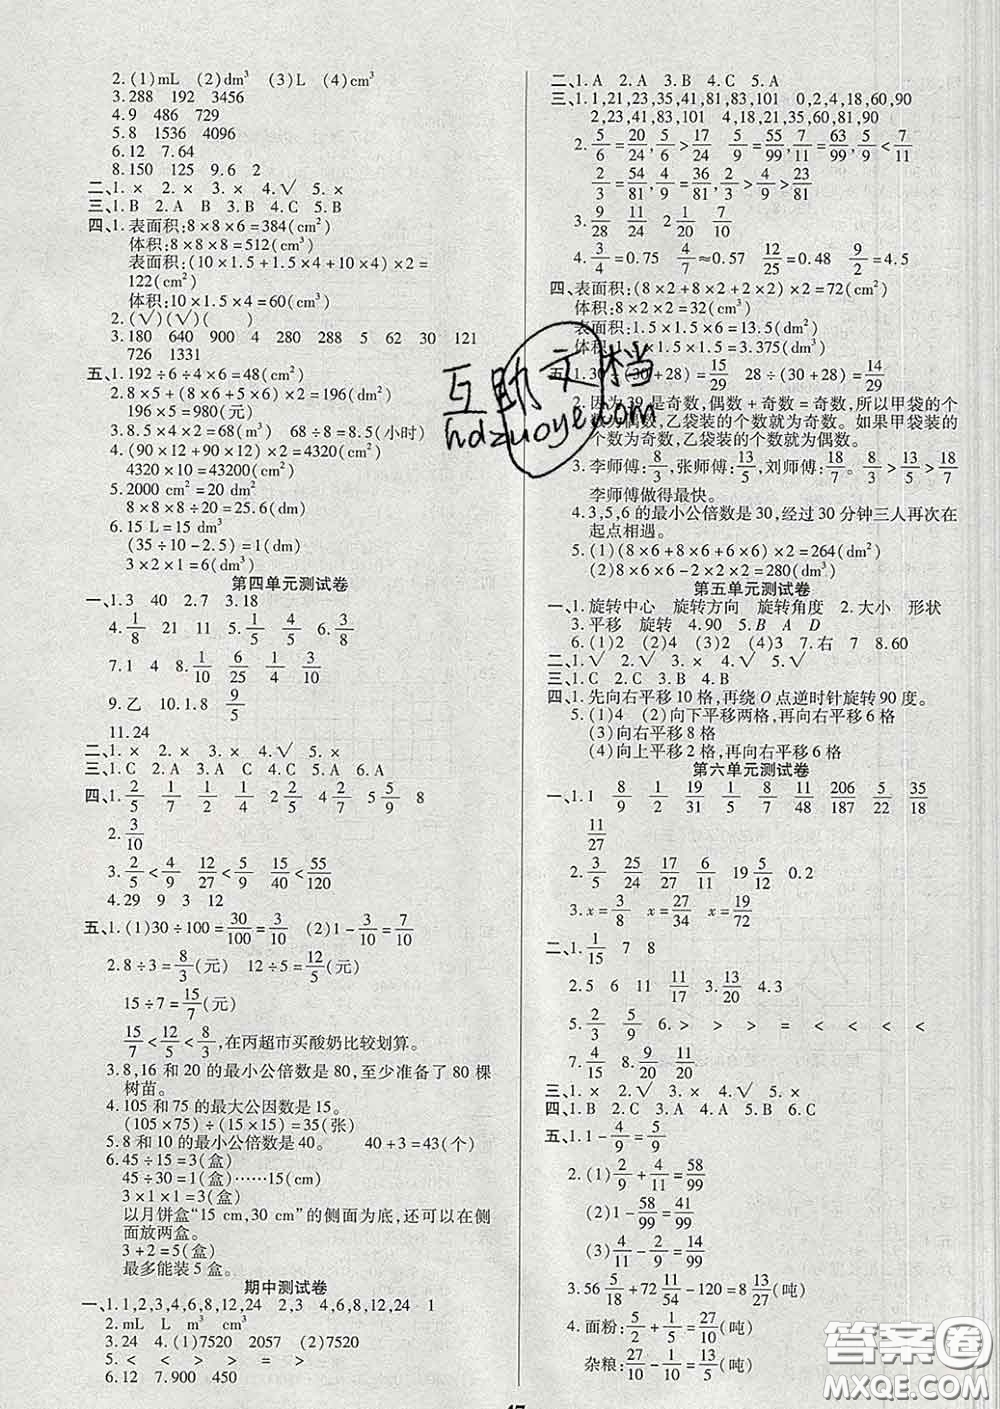 2.(1)mL (2)dm³ (3)L (4)cm³
3.288 192 3456
4.9 486 729
5.8 1536 4096
6.12 7.64
8.150 125 9.6 2
二、1.× 2.× 3.× 4.√ 5.×
三、1.B 2.A B 3.B 4.C 5.B
四、1.表面积:8×8×6=384(cm²)
体积:8×8×8=512(cm³)
表面积:(10×1.5+1.5×4+10×4)×2=
122(cm²)
体积:10×1.5×4=60(cm³)
2.(√)(√)( )
3.180 640 900 4 280 288 5 62 30 121
726 1331
五、1.192÷6÷4×6=48(cm²)
2.8×5+(8×6+5×6)×2=196(dm²)
196×5=980(元)
3.8.5×4×2=68(m³) 68÷8=8.5(小时)
4.(90×12+90×12)×2=4320(cm²)
4320×10=43200(cm²)
5.2000 cm²=20(dm²)
8×8×8÷20=25.6(dm)
6.15 L=15 dm³
(35÷10-2.5)=1(dm)
3×2×1=6(dm³)
第四单元测试卷
一、1.3 40 2.7 3.18
4.1/8 21 11 5.1/4 4/5 6.3/8
7.1 4 8.1/10 6/25 3/10
9.乙 10.1.8 9/5
11.24
二、1.× 2.× 3.× 4.√ 5.×
三、1.C 2.A 3.A C 4.C 5.A 6.A
四、1.2/5 1/7 1/2 1/4 3/4 2/5 8
2.3/10
3.2/5<4/9 12/27<5/9 5/12<55/120
4.29 9 3 12
五、1.(1)30÷100=30/100=3/10 (2)1-3/10=7/10
2.8÷3=8/3(元) 12÷5=12/5(元)
15÷7=15/7(元)
15/7<12/5<8/3,在丙超市买酸奶比较划算。
3.8,16和20的最小公倍数是80,至少准备了80棵
树苗。
4.105和75的最大公因数是15。
(105×75)÷(15×15)=35(张)
5.8和10的最小公倍数是40。 40+3=43(个)
6.45÷15=3(盒)
45÷30=1(盒)……15(cm)
3×1×1=3(盒)
以月饼盒“15 cm,30 cm”的侧面为底,还可以在侧
面放两盒。
3+2=5(盒)
最多能装5盒。
期中测试卷
一、1.1,2,3,4,6,8,12,24 2,3 4,6,8,12,24 1
2.mL L m³ cm³
3.24 4.(1)7520 2057 (2)7520
5.< < > > = >
6.12 7.900 450
二、1.A 2.A 3.B 4.C 5.A
三、1.1,21,23,35,41,81,83,101 0,2,4,18,60,90
2,23,41,83,101 4,18,21,35,60,81,90
2.5/6=20/24,5/6>17/24 5/9=55/99,7/11=63/99,5/9<7/11
2/3=54/81,4/9=36/81,2/3>4/9>23/81
3.9/28 11/24 2 1/20 7/10
4.3/4=0.75 4/7≈0.57 12/25=0.48 9/2=4.5
四、表面积:(8×2+8×2+2×2)×2=72(cm²)
体积:8×2×2=32(cm³)
表面积:1.5×1.5×6=13.5(dm²)
体积:1.5×1.5×1.5=3.375(dm³)
五、1.30÷(30+28)=15/29 28÷(30+28)=14/29
2.因为39是奇数,偶数+奇数=奇数,所以甲袋的个
数为偶数,乙袋装的个数就为奇数。如果甲袋装的
个数为奇数,乙袋装的个数就为偶数。
3.李师傅:8/3,张师傅:13/5,刘师傅:18/7。8/3>13/5>18/7
李师傅做得最快。
4.3,5,6的最小公倍数是30,经过30分钟三人再次在
起点相遇。
5.(1)(8×6+8×6+5×8)×2=264(dm²)
(2)8×6×6-8=280(dm³)
第五单元测试卷
一、1.旋转中心 旋转方向 旋转角度 2.大小 形状
3.平移 旋转 4.90 5.B A D
6.(1)(2)(4) (3) (2)(4)3 7.右 7 8.60
二、1.√ 2.√ 3.× 4.√ 5.√
三、1.C 2.C 3.B 4.B
四、1.先向右平移10格,再绕O点逆时针旋转90度。
5.(1)4 (2)向下平移两格,再向右平移4格
(3)向右平移8格
(4)向上平移2格,再向右平移6格
第六单元测试卷
一、1.1 8/9 1/2 19/31 1/5 8/7 11/48 206/187 5/22 35/18
11/27
2.3/5 25/24 17/27 6/11 19 5/12 0.2
3.x=3/8 x=27/34 x=19/72
二、1.1/15 7 8
2.5 6 11 11/17 3.13/20 4.3
5.2/9 5/9 6.> > > = < < < <
7.4/15 8.9/20 11/20
三、1.× 2.√ 3.× 4.√ 5.×
四、1.B 2.C 3.A 4.A 5.B 6.C
五、1.1-4/9=5/9
2.(1)2/9+4/11=58/99
(2)1-58/99=41/99
(3)4/11-2/9=14/99
3.56 5/18+72 11/54-120=8 13/27(吨)
4.面粉:5/2+1/5=27/10(吨)
杂粮:27/10-1/10=13/5(吨)
互助文档
hdzuoye.com
答案圈
MXQE.COM
47